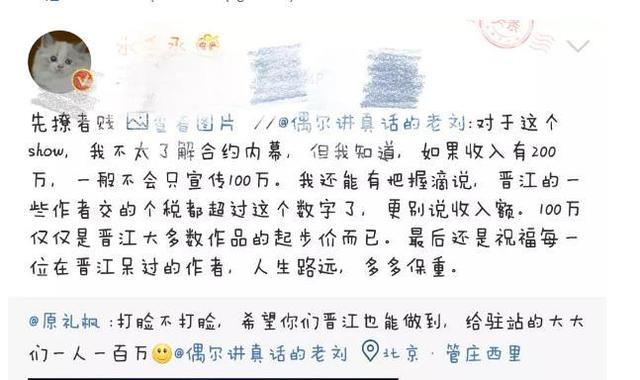 先撩者贱 查看图片 //@偶尔讲真话的老刘:对于这个
show, 我不太了解合约内幕, 但我知道, 如果收入有200
万, 一般不会只宣传100万。我还能有把握滴说, 晋江的一
些作者交的个税都超过这个数字了, 更别说收入额。100万
仅仅是晋江大多数作品的起步价而已。最后还是祝福每一
位在晋江呆过的作者, 人生路远, 多多保重。
@原礼枫:打脸不打脸, 希望你们晋江也能做到, 给驻站的大大
们一人一百万@偶尔讲真话的老刘 北京·管庄西里